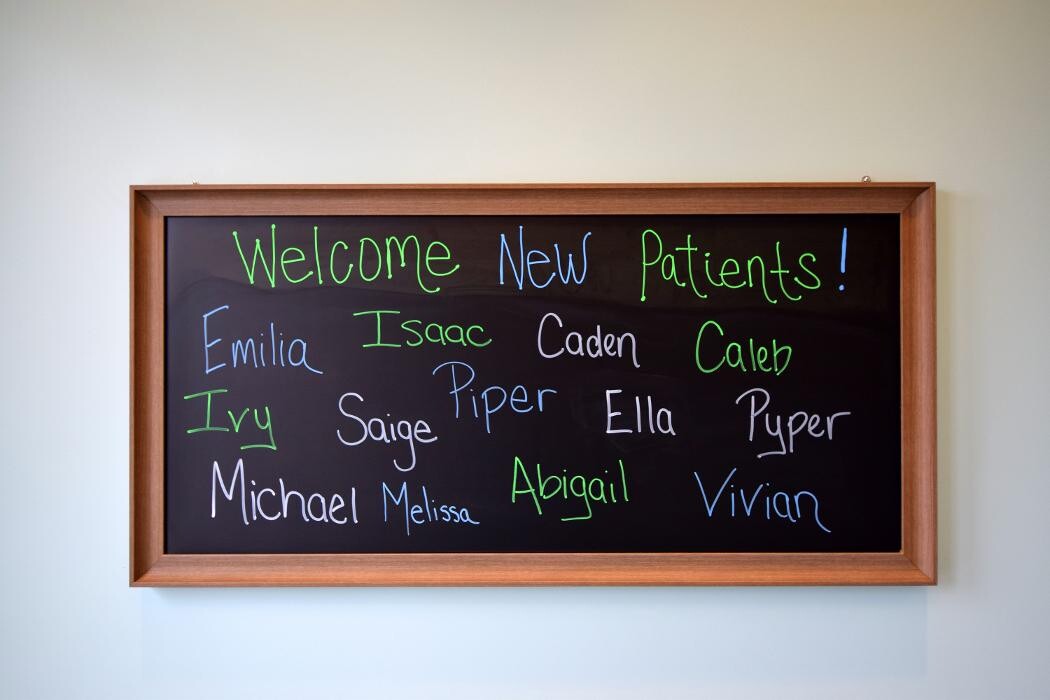 Welcome New Patients!
Emilia Isaac Caden Caleb
Ivy Saige Piper Ella Pyper
Michael Melissa Abigail Vivian